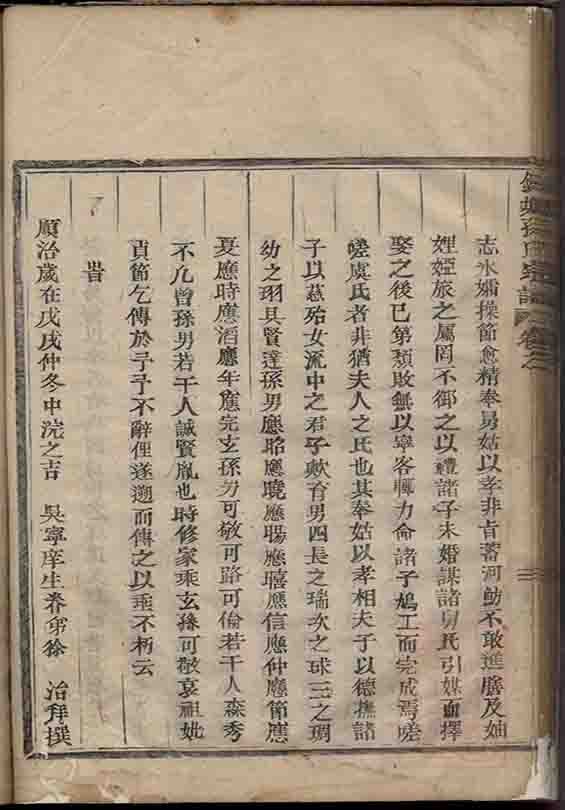 志永孀操節愈精奉舅姑以孝非旨蓄河魴不敢進膳及妯
娌婭旅之屬罔不御之以禮諸子未婚謀諸舅氏引媒而擇
娶之後已第頹敗無以寧客輒力命諸子鳩工而完成焉嗟
嗟虞氏者非猶夫人之氏也其奉姑以孝相夫子以德撫諸
子以慈殆女流中之君子歟育男四長之瑞次之球三之琱
幼之珝具賢達孫男應昭應曉應暘應禧應信應仲應節應
夏應時應滔應年應完玄孫男可敬可路可倫若干人森秀
不凡曾孫男若干人誠賢胤也時修家乘玄孫可敬哀祖妣
貞節乞傳於予予不辭俚遂遡而傳之以垂不朽云
旹
順治歲在戊戌仲冬中浣之吉 吳寧庠生眷弟徐 治拜撰
孫氏宗譜 卷之